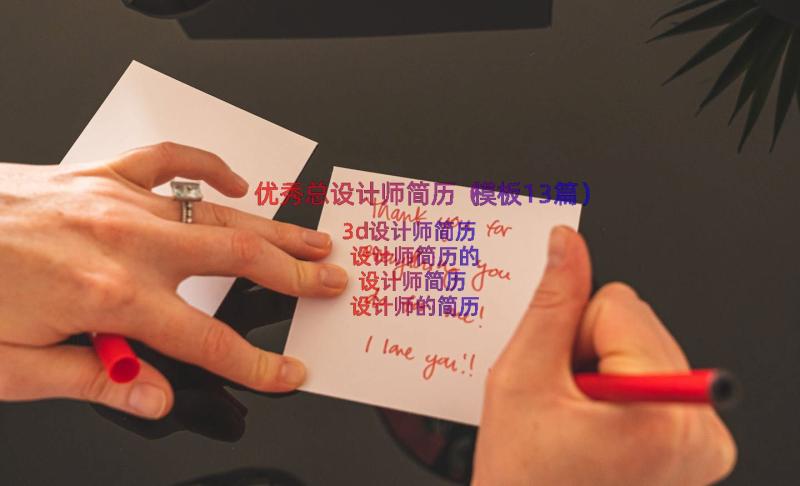 优秀总设计师简历（模板13篇）
3d设计师简历
设计师简历的
设计师简历
设计师的简历
Thank you for
you
me!
I love you!!